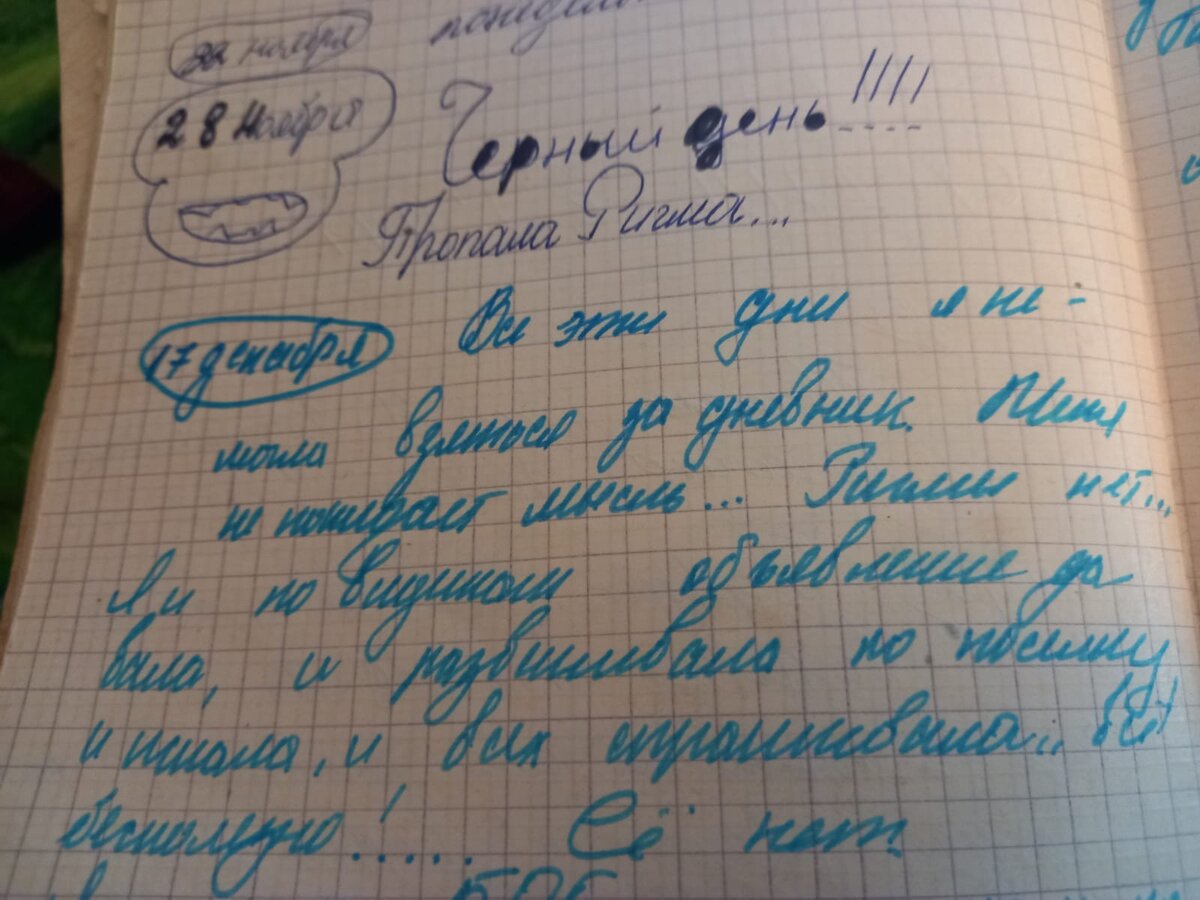 22 ноября
28 Ноября Черный день!!!!
Пропала Ригма...
17 декабря Все эти дни я не-
могла взяться за дневник. Меня
не покидает мысль... Ригмы нет...
Я и по видикам объявление да
вала, и развешивала по поселку
и искала, и всех спрашивала... Всё
бесполезно!..... Её нет